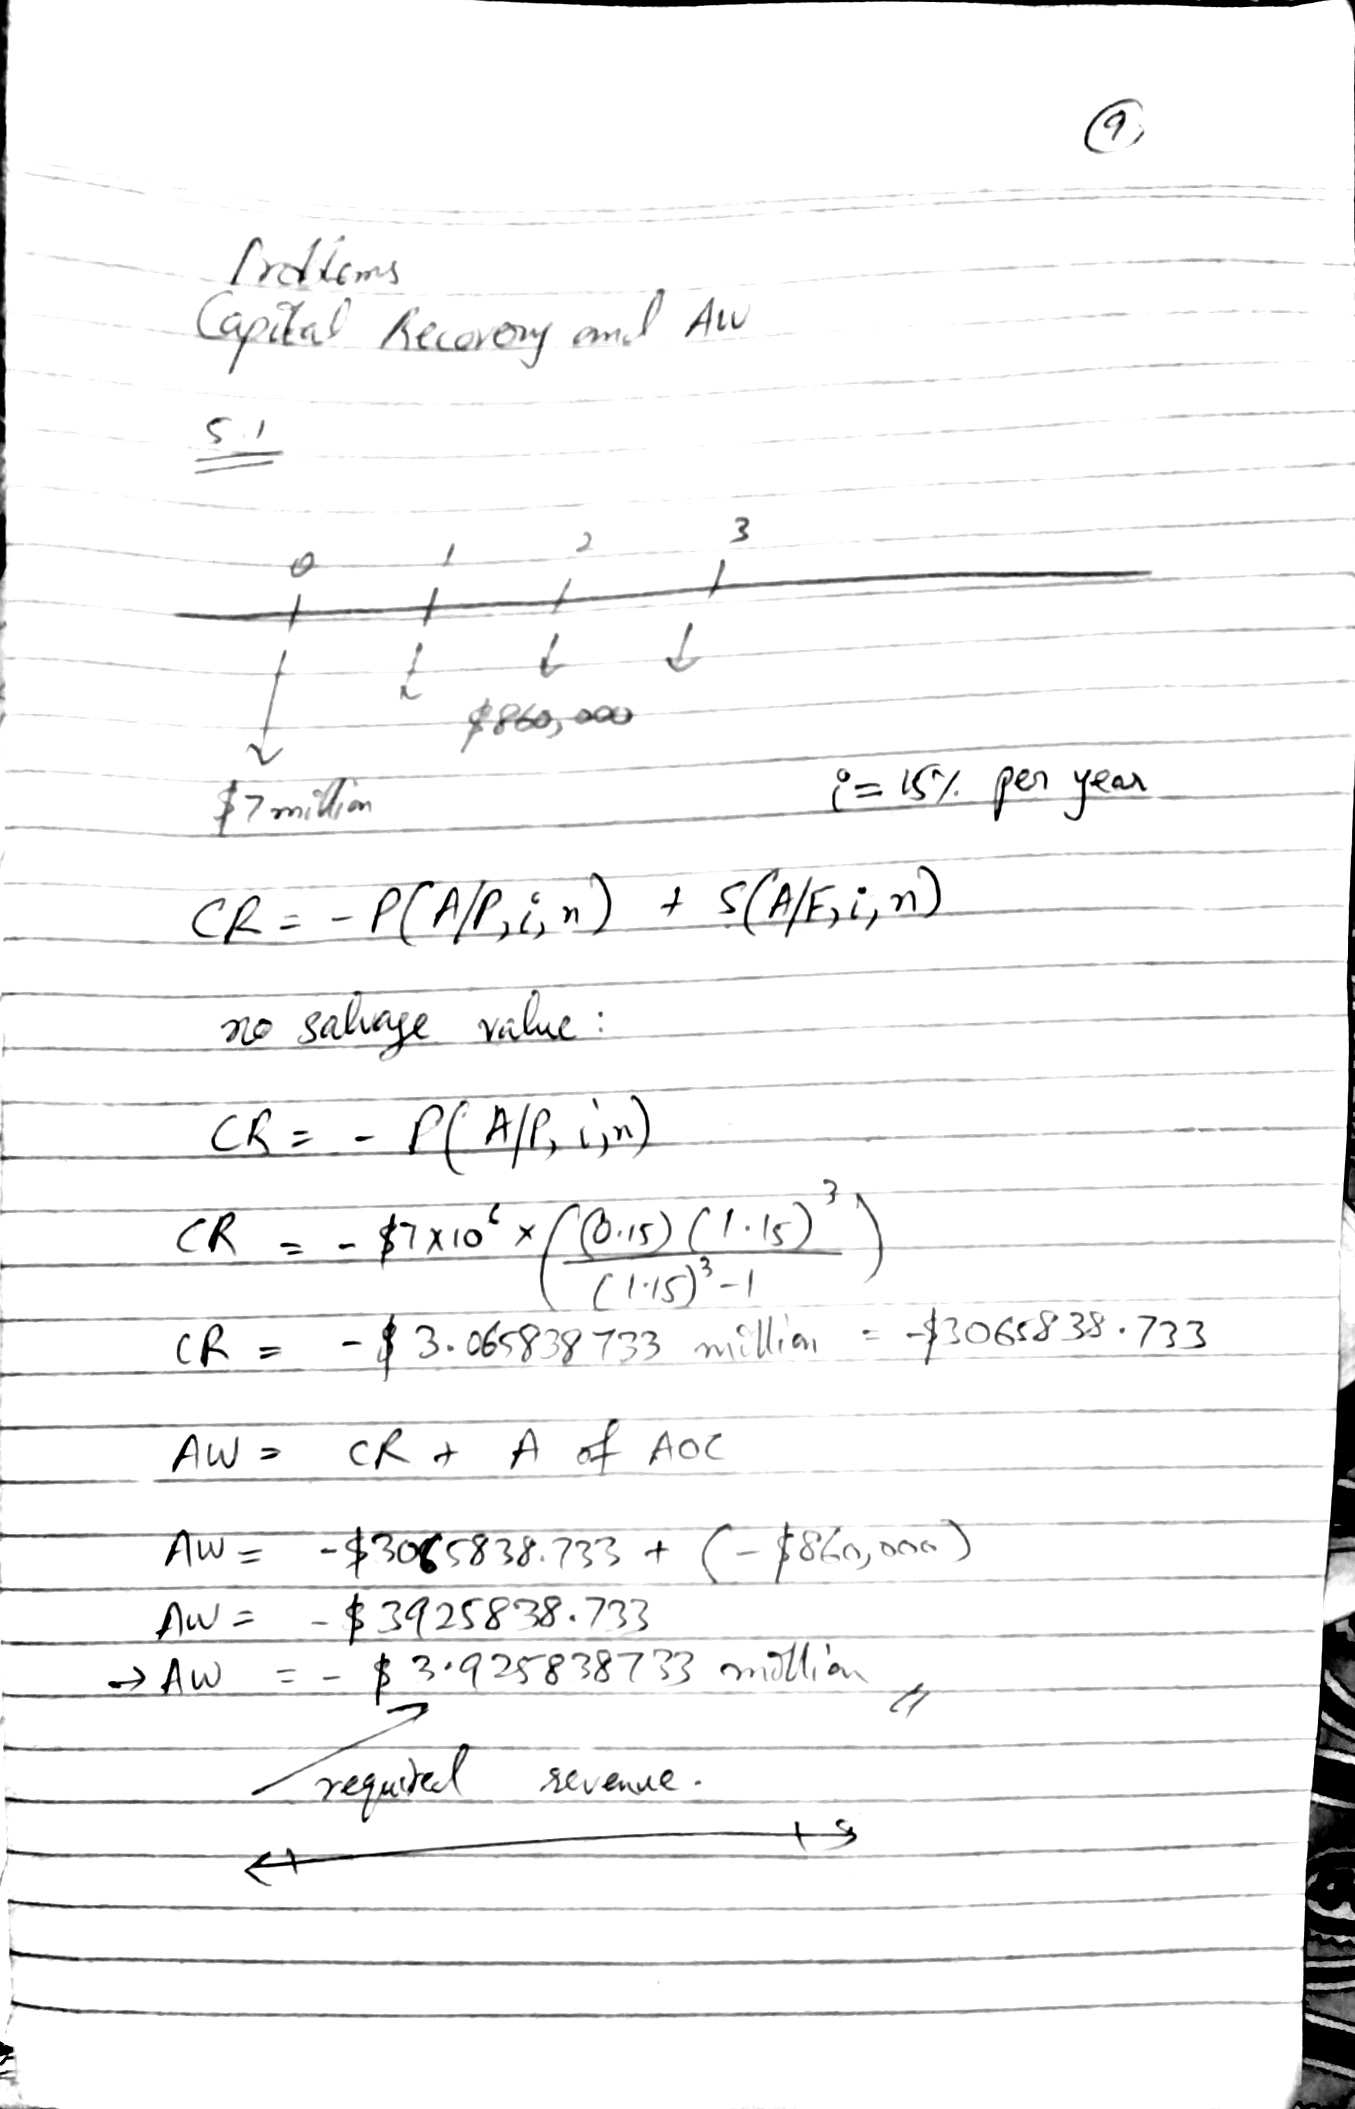 9
Problems
Capital Recovery and AW
5.1
0 1 2 3
$860,000
$7 million
i = 15% per year
CR = - P(A/P, i, n) + S(A/F, i, n)
no salvage value :
CR = - P( A/P, i, n)
CR = - $7 x 10⁶ x ( (0.15) (1.15)³ / (1.15)³ - 1 )
CR = - $ 3.065838733 million = -$3065838.733
AW = CR + A of AOC
AW = -$3065838.733 + (-$860,000)
AW = - $ 3925838.733
→ AW = - $ 3.925838733 million //
required revenue.